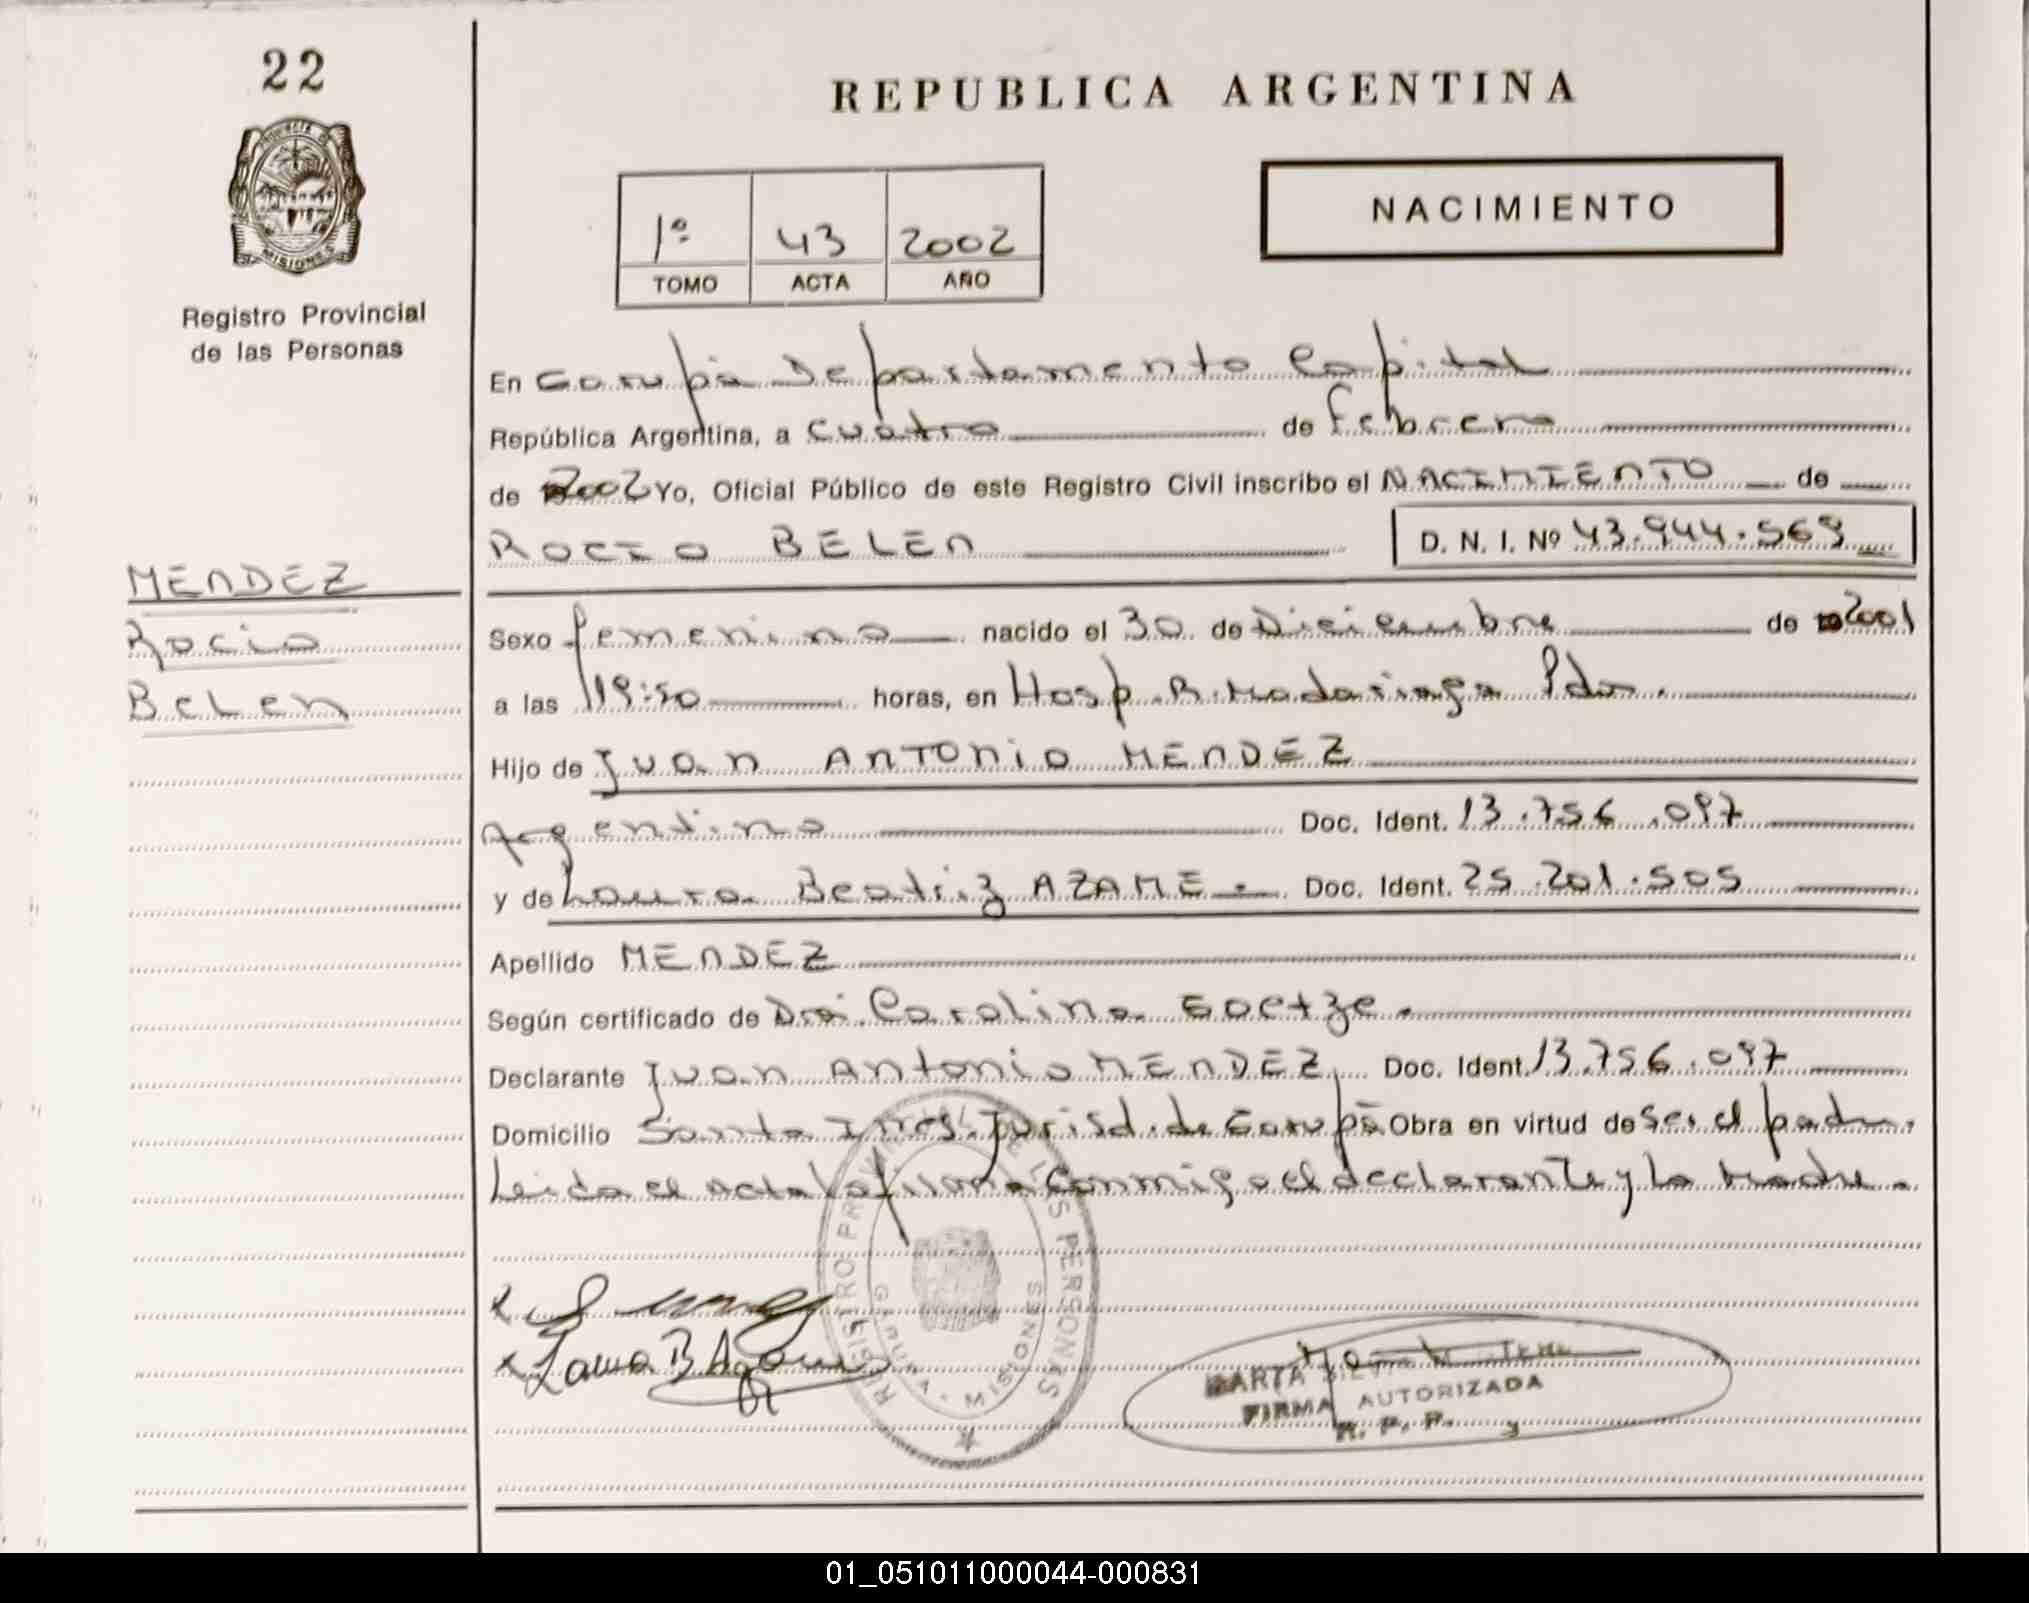 22
REPUBLICA ARGENTINA
PROVINCIA DE
MISIONES
Registro Provincial
de las Personas
1º 43 2002
TOMO ACTA AÑO
NACIMIENTO
En Garupá Departamento Capital
República Argentina, a cuatro de Febrero
de 2002 Yo, Oficial Público de este Registro Civil inscribo el NACIMIENTO de
ROCIO BELEN D. N. I. Nº 43.944.569
MENDEZ
Rocio
Belen
Sexo femenino nacido el 30 de Diciembre de 2001
a las 19:50 horas, en Hosp. R. Madariaga Pdas.
Hijo de Juan ANTONIO MENDEZ
Argentino Doc. Ident. 13.756.097
y de Laura Beatriz AZAME Doc. Ident. 25.201.505
Apellido MENDEZ
Según certificado de Dra. Carolina Goetze.
Declarante Juan Antonio MENDEZ Doc. Ident. 13.756.097
Domicilio Santa Ines. Jurisd. de Garupá Obra en virtud de ser el padre.
Leida el acta la firma conmigo el declarante y la Madre.
REGISTRO PROVINCIAL DE LAS PERSONAS
GARUPA - MISIONES
Laura B
MARTA
FIRMA AUTORIZADA
R. P. P.
01_051011000044-000831